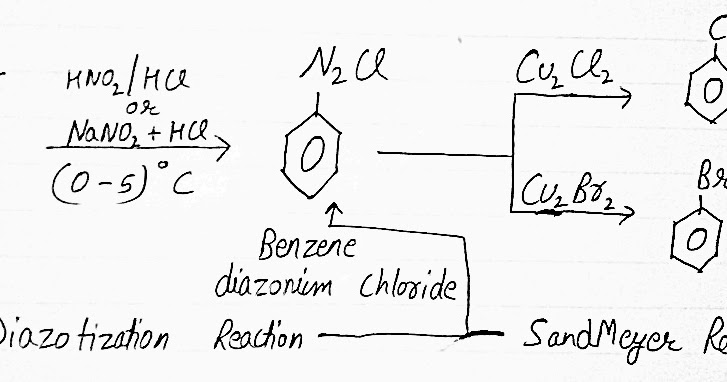 HNO₂/HCl
or
NaNO₂ + HCl
(0-5)°C
N₂Cl
Cu₂Cl₂
C
Cu₂Br₂
Br
Benzene
diazonium Chloride
Diazotization Reaction
SandMeyer Re